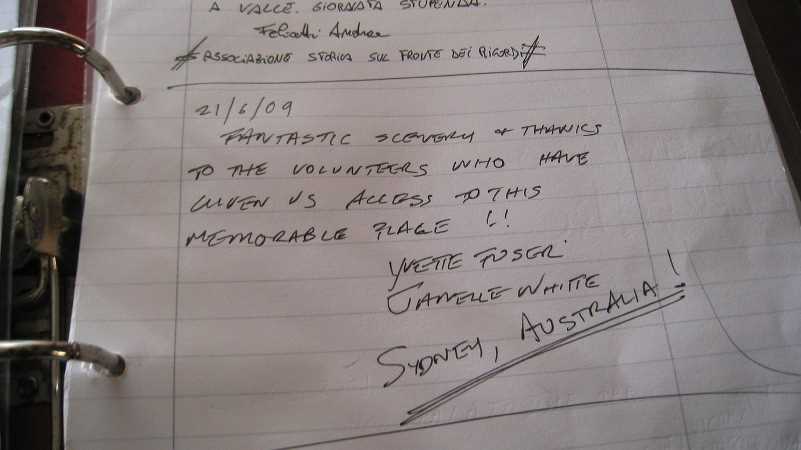 A VALLE. GIORNATA STUPENDA.
Andrea
ASSOCIAZIONE STORICA SUL FRONTE DEI RICORDI
21/6/09
FANTASTIC SCENERY & THANKS
TO THE VOLUNTEERS WHO HAVE
GIVEN US ACCESS TO THIS
MEMORABLE PLACE !!
YVETTE FUSER.
JANELLE WHITE
SYDNEY, AUSTRALIA!